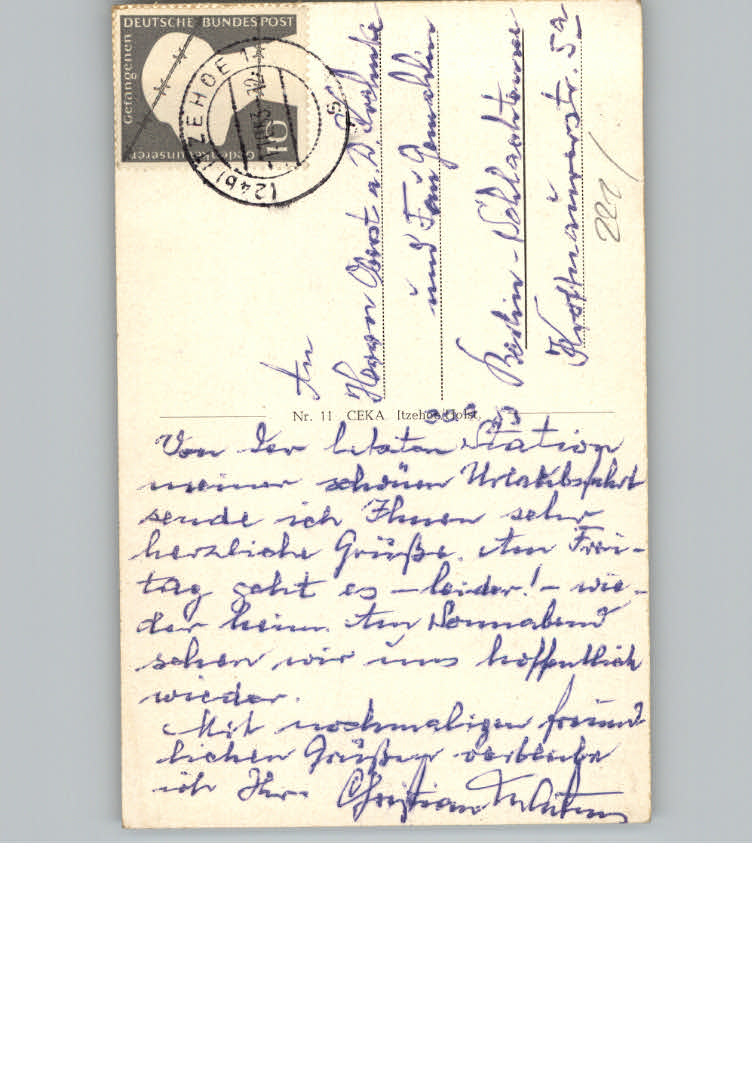 DEUTSCHE BUNDESPOST
Gedenket unserer
Gefangenen
10
(24b) ITZEHOE 1
An
Herrn Oberst a. D.
und Frau Gemahlin
Berlin - Schlachtensee
5a
221/
Nr. 11 CEKA Itzehoe/Holst.
Von der letzten Station
meiner schönen Urlaubsfahrt
sende ich Ihnen sehr
herzliche Grüße. Am Frei-
tag geht es – leider! – wie-
der heim. Am Sonnabend
sehen wir uns hoffentlich
wieder.
Mit nochmaligen freund-
lichen Grüßen verbleibe
ich Ihr Christian